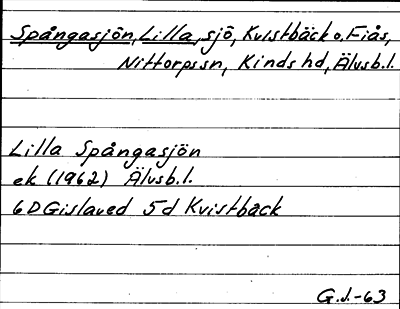 Spångasjön, Lilla, sjö, Kvistbäck o. Fiås,
Nittorps sn, Kinds hd, Älvsb.l.
Lilla Spångasjön
ek (1962) Älvsb.l.
6D Gislaved 5d Kvistbäck
G.J.-63